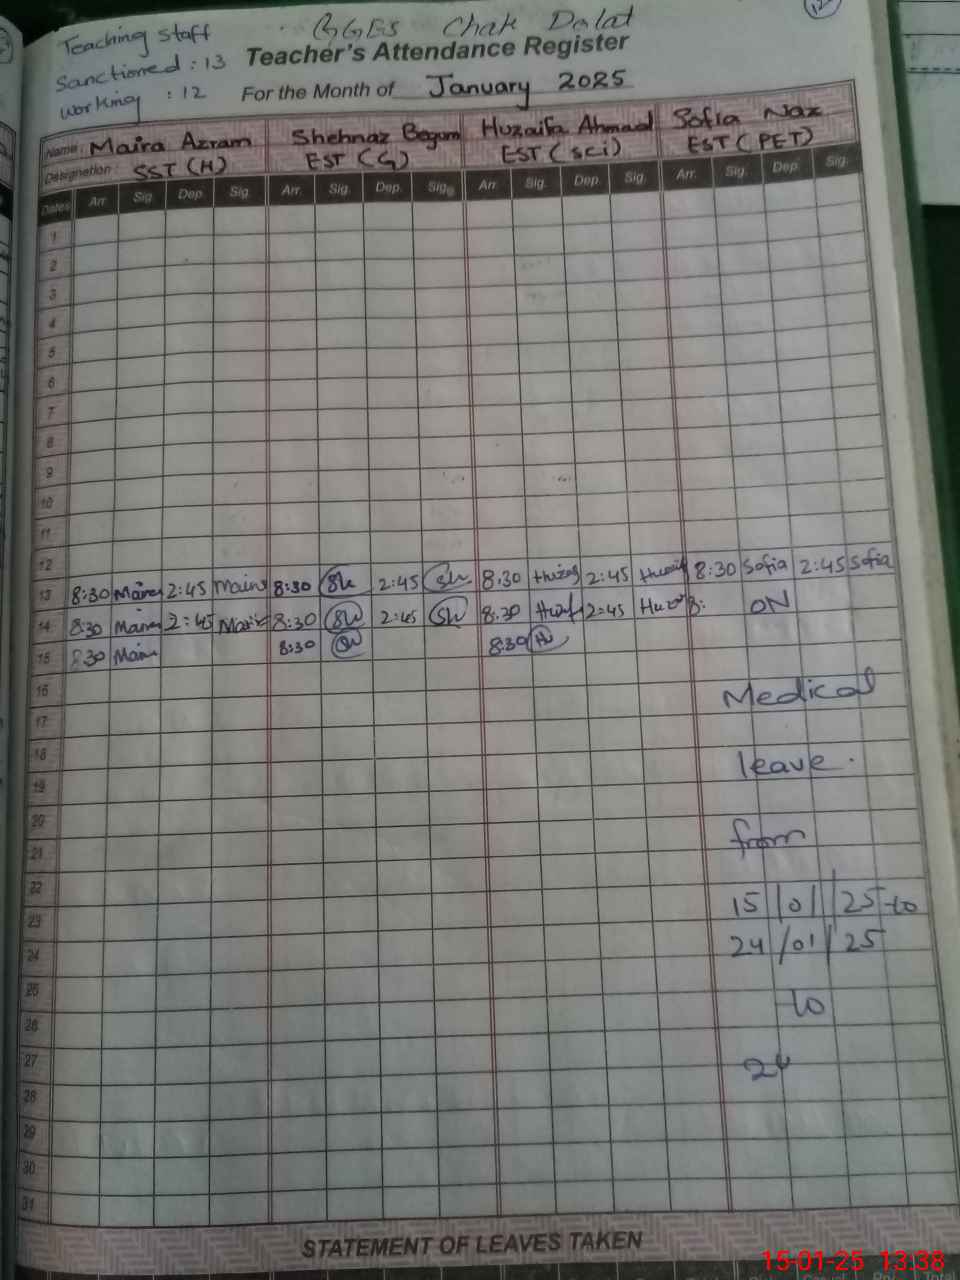 Teaching Staff
GGES Chak Dalat
Sanctioned : 13
Teacher's Attendance Register
Working : 12
For the Month of January 2025
Name: Maira Azram Shehnaz Begum Huzaifa Ahmad Sofia Naz
Designation: SST (H) EST (G) EST (Sci) EST (PET)
Dates Arr. Sig. Dep. Sig. Arr. Sig. Dep. Sig. Arr. Sig. Dep. Sig. Arr. Sig. Dep. Sig.
1
2
3
4
5
6
7
8
9
10
11
12
13 8:30 2:45 8:30 Sh 2:45 Sh 8:30 2:45 8:30 Sofia 2:45 Sofia
14 8:30 2:45 8:30 Sh 2:45 Sh 8:30 2:45 8: ON
15 8:30 8:30 8:30
16 Medical
17
18 leave.
19
20
21 from
22
23 15/01/25 to
24 24/01/25
25
26 to
27
28 24
29
30
31
STATEMENT OF LEAVES TAKEN
15-01-25 13:38